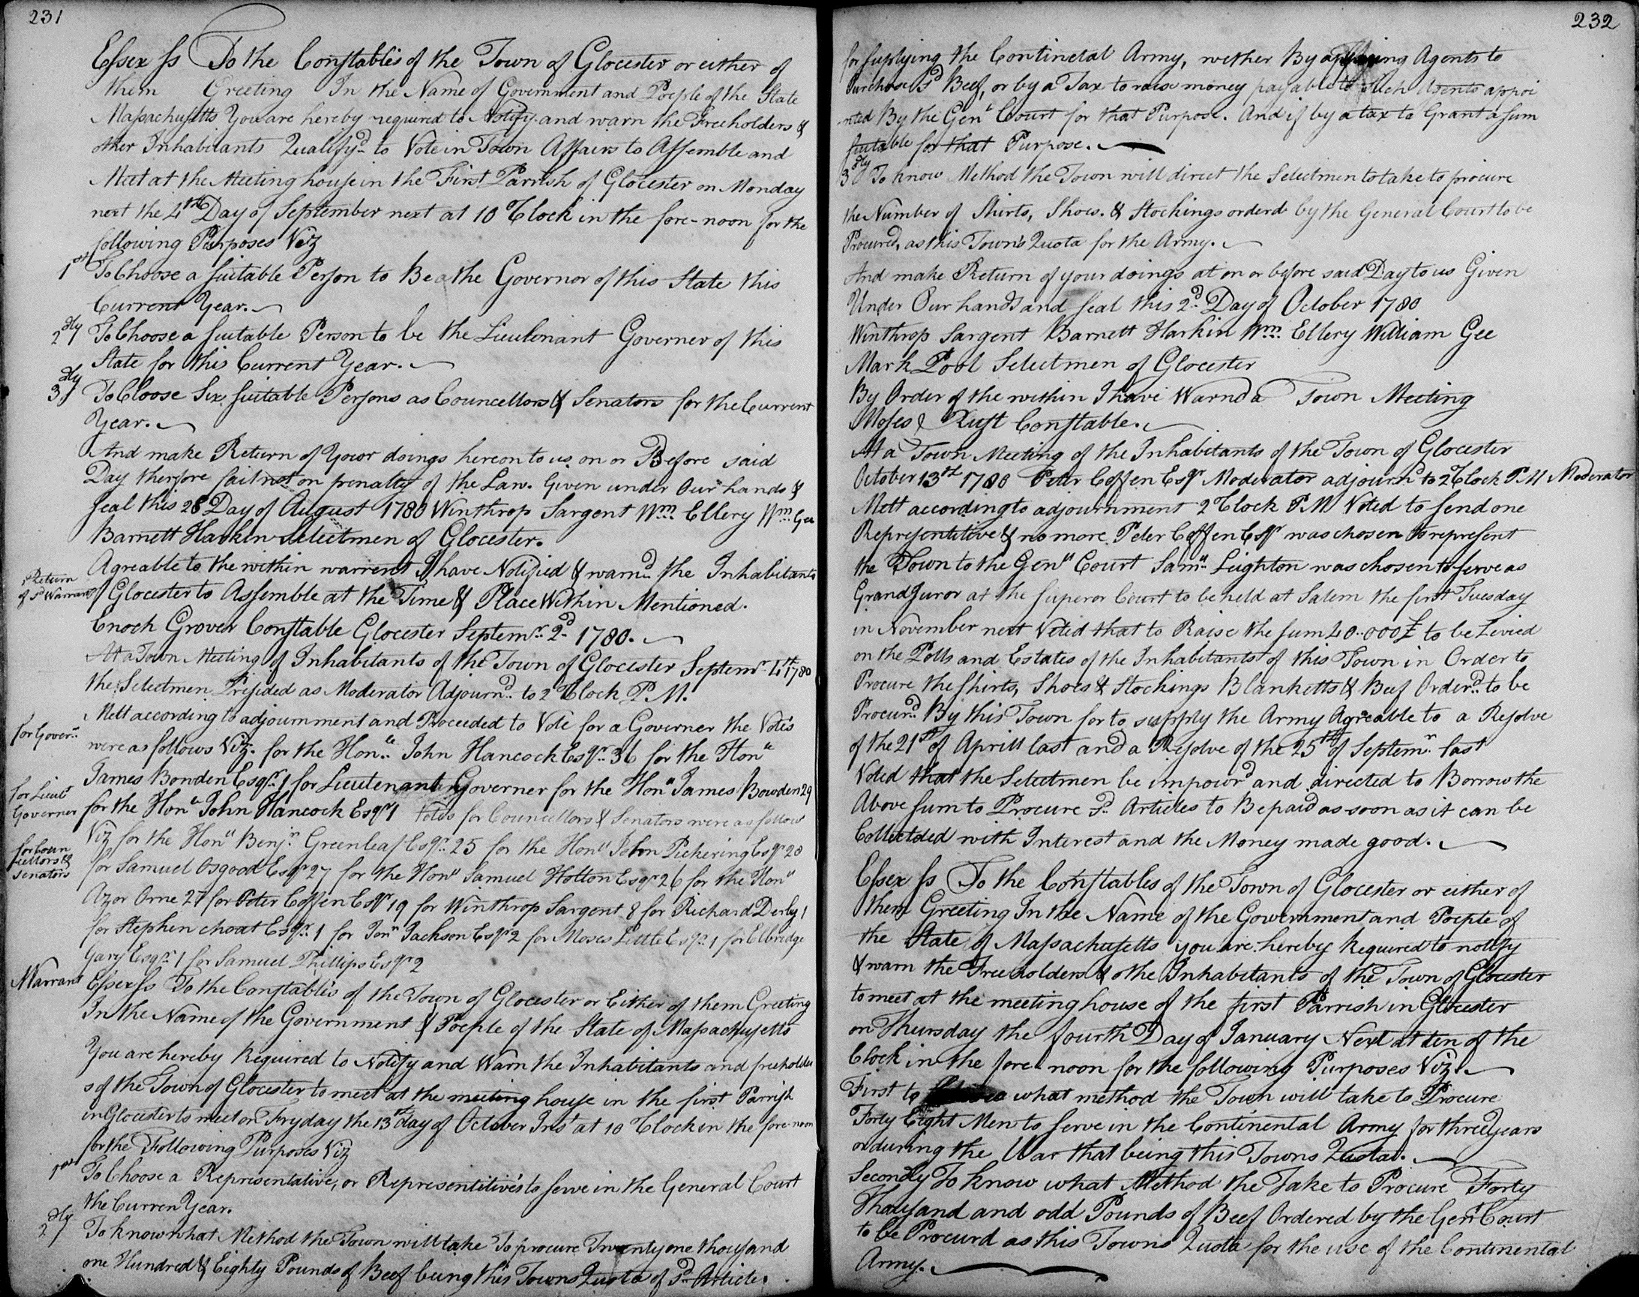 231
Essex ss To the Constables of the Town of Glocester or either of
them Greeting In the Name of Government and Poeple of the State
Massachusetts You are hereby required to Notify and warn the Freeholders &
other Inhabitants Qualifyd to Vote in Town Affairs to Assemble and
Meet at the Meeting house in the First Parrish of Glocester on Monday
next the 4th Day of September next at 10 Clock in the fore-noon for the
following Purposes Viz
1st To Choose a suitable Person to Be the Governor of this State this
Current Year.
2dly To Choose a suitable Person to be the Lieutenant Governer of this
State for this Current Year.
3dly To Cloose Six suitable Persons as Councellors & Senators for the Current
Year.
And make Return of Your doings hereon to us on or Before said
Day therfore fail not on penalty of the Law. Given under Our hands &
seal this 28 Day of August 1780 Winthrop Sargent Wm Ellery Wm Gee
Barnett Harkin Selectmen of Glocester.
Return of sd Warrant
Agreable to the within warrent I have Notified & warnd the Inhabitants
of Glocester to Assemble at the Time & Place Within Mentioned.
Enoch Grover Constable Glocester Septemr 2d 1780.
At a Town Meeting of Inhabitants of the Town of Glocester Septemr 4th 1780
the Selectmen Presided as Moderator Adjournd to 2 Clock P.M.
Mett according to adjournment and Proceeded to Vote for a Governer the Votes
for Goverr
were as follows Viz. for the Honle John Hancock Esqr 36 for the Honle
James Bowden Esqr 1 for Lieutenant Governer for the Honle James Bowden 29
for Lieut Governer
for the Honle John Hancock Esqr 1 Votes for Councellors & Senators were as follow
Viz for the Honle Benjn Greenleaf Esqr 25 for the Honle John Pickering Esqr 28
for Councellors & Senators
for Samuel Osgood Esqr 27 for the Honle Samuel Holton Esqr 26 for the Honle
Azor Orne 27 for Peter Coffen Esqr 19 for Winthrop Sargent 8 for Richard Derby 1
for Stephen choat Esqr 1 for Jonn Jackson Esqr 2 for Moses Little Esqr 1 for Elbridge
Gary Esqr 1 for Samuel Phillips Esqr 2
Warrant
Essex ss To the Constables of the Town of Glocester or Either of them Greeting
In the Name of the Government & Poeple of the State of Massachusetts
You are hereby Required to Notify and Warn the Inhabitants and freeholder
s of the Town of Glocester to meet at the meeting house in the first Parrish
in Glocester to meet on Fryday the 13th day of October Inst at 10 Clock in the fore-noon
for the Following Purposes Viz
1st To Choose a Representative, or Representitives to serve in the General Court
the Curren Year.
2dly To know what Method the Town will take To procure Twenty one thousand
one Hundred & Eighty Pounds of Beef being this Towns Quota of sd Article.
232
for suplying the Continetal Army, wether By Agents to
Purchase sd Beef, or by a Tax to raise money payable to such Agents appoi
nted By the Genll Court for that Purpose. And if by a tax to Grant a sum
suitable for that Purpose.
3dly To know Method the Town will direct the Selectmen to take to procure
the Number of Shirts, Shoes. & Stockings orderd by the General Court to be
Procured, as this Town's Quota for the Army.
And make Return of your doings at on or before said Day to us Given
Under Our hands and seal this 2d Day of October 1780
Winthrop Sargent Barnett Harkin Wm Ellery William Gee
Mark Pool Selectmen of Glocester
By Order of the within I have Warnd a Town Meeting
Moses Rust Constable.
At a Town Meeting of the Inhabitants of the Town of Glocester
October 13th 1780 Peter Coffen Esqr Moderator adjournd to 2 Clock P.M Moderator
Mett according to adjournment 2 Clock P M Voted to send one
Representitive & no more Peter Coffen Esqr was chosen to represent
the Town to the Genll Court Samll Leighton was chosen to serve as
Grand Juror at the superor Court to be held at Salem the first Tuesday
in November next Voted that to Raise the sum 40.000£ to be Levied
on the Polls and Estates of the Inhabitants of this Town in Order to
Procure the Shirts, Shoes & Stockings Blanketts & Beef Orderd to be
Procurd By this Town for to supply the Army Agreable to a Resolve
of the 21st of Aprill last and a Resolve of the 25th of Septemr last
Voted that the Selectmen be impowrd and directed to Borrow the
Above sum to Procure sd Articles to Be paid as soon as it can be
Collectded with Interest and the Money made good.
Essex ss To the Constables of the Town of Glocester or either of
them Greeting In the Name of the Government and Poeple of
the State of Massachusetts you are hereby Required to notify
& warn the Freeholders & othe Inhabitants of the Town of Glocester
to meet at the meeting house of the first Parrish in Glocester
on Thursday the fourth Day of January Next at ten of the
Clock in the fore noon for the following Purposes Viz.
First to what method the Town will take to Procure
Forty Eight Men to serve in the Continental Army for three years
or during the War that being this Towns Quota.
Secondly To know what Method the Take to Procure Forty
Thousand and odd Pounds of Beef Ordered by the Genll Court
to be Procurd as this Towns Quota for the use of the Continental
Army.